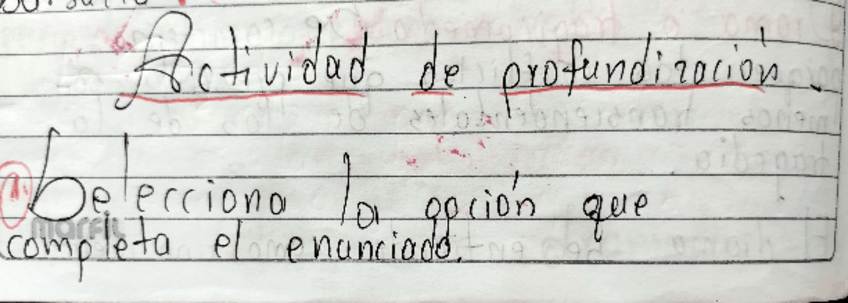 Actividad de profundización.
1. Selecciona la opción que
MARFIL
completa el enunciado.